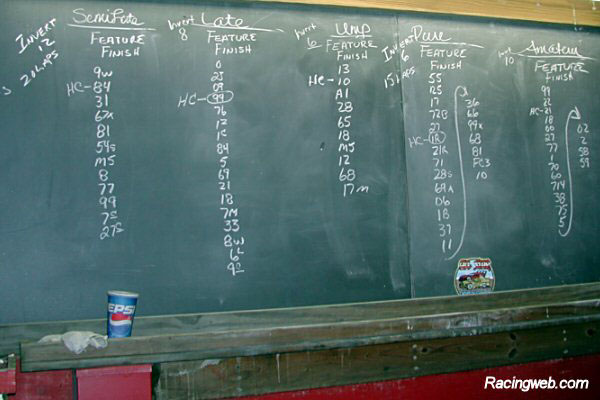 INVERT
12
20 LAPS
Semi Late
FEATURE
FINISH
9w
HC-84
31
67x
81
54s
M5
8
77
99
7s
27s
Invert
8
Late
FEATURE
FINISH
0
23
09
HC-99
76
12
1c
84
5
69
21
18
7M
33
8w
6L
9s
6
Ump
FEATURE
FINISH
13
HC-10
A1
28
65
18
MJ
12
68
17m
INVERT
6
15 LAPS
Pure
FEATURE
FINISH
55
17
72B
27
HC-1R
21R
71
28s
69A
D6
18
37
11
36
66
99x
68
81
FC3
10
10
Amateur
FEATURE
FINISH
99
22
HC-21
18
60
27
77
1
70
60
714
38
75
5
02
2
58
59
PEPSI
Racingweb.com